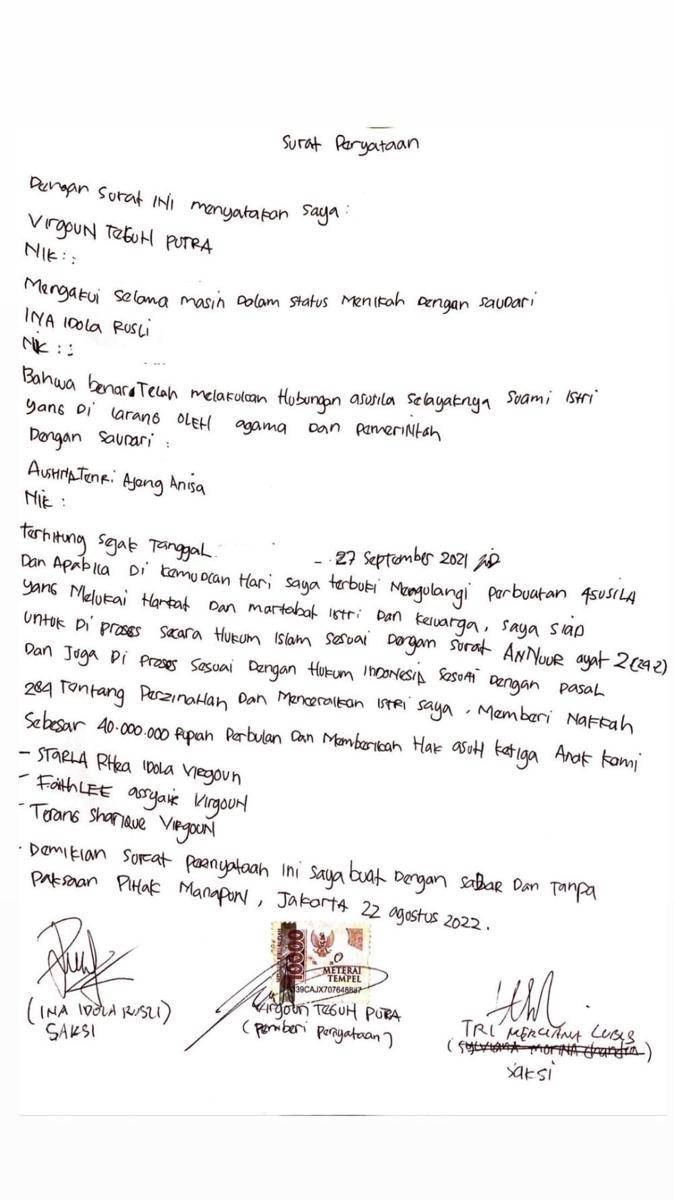 Surat Peryataan
Dengan Surat INI menyatakan saya :
VIRGOUN TEGUH PUTRA
NIK : :
Mengakui Selama masih Dalam Status Menikah Dengan Saudari
INA IDola RUSLI
NiK : :
Bahwa benar Telah melakukan Hubungan asusila Selayaknya Suami istri
yang Di larang OLEH agama Dan Pemerintah
Dengan Saudari :
Tenri Ajeng Anisa
Nik :
terhitung Sejak Tanggal - 27 September 2021
Dan Apabila Di kemudian Hari saya terbukti Mengulangi perbuatan ASUSILA
yang Melukai Harkat Dan martabat istri Dan keluarga, saya siap
untuk Di proses secara Hukum Islam sesuai Dengan Surat ANNUUR ayat 2 (24:2)
Dan Juga Di proses Sesuai Dengan Hukum INDONESIA Sesuai Dengan pasal
284 Tentang Perzinahan Dan Menceraikan istri saya, Memberi Nafkah
Sebesar 40.000.000 Rupiah Perbulan Dan Memberikan Hak asuh ketiga Anak kami
- STARLA RHea IDOLA VIRGOUN
- FaithLEE assyakie VIRGOUN
- Terang Sharique VIRGOUN
. Demikian Surat pernyataan Ini Saya buat Dengan SaDAR Dan Tanpa
Paksaan PIHak Manapun, JakartA 22 agustus 2022.
10000
METERAI
TEMPEL
39CAJX707648887
(INA IDOLA RUSLI)
SAKSI
Virgoun TEGUH PUTRA
(Pemberi Peryataan)
TRI LUBIS
saksi